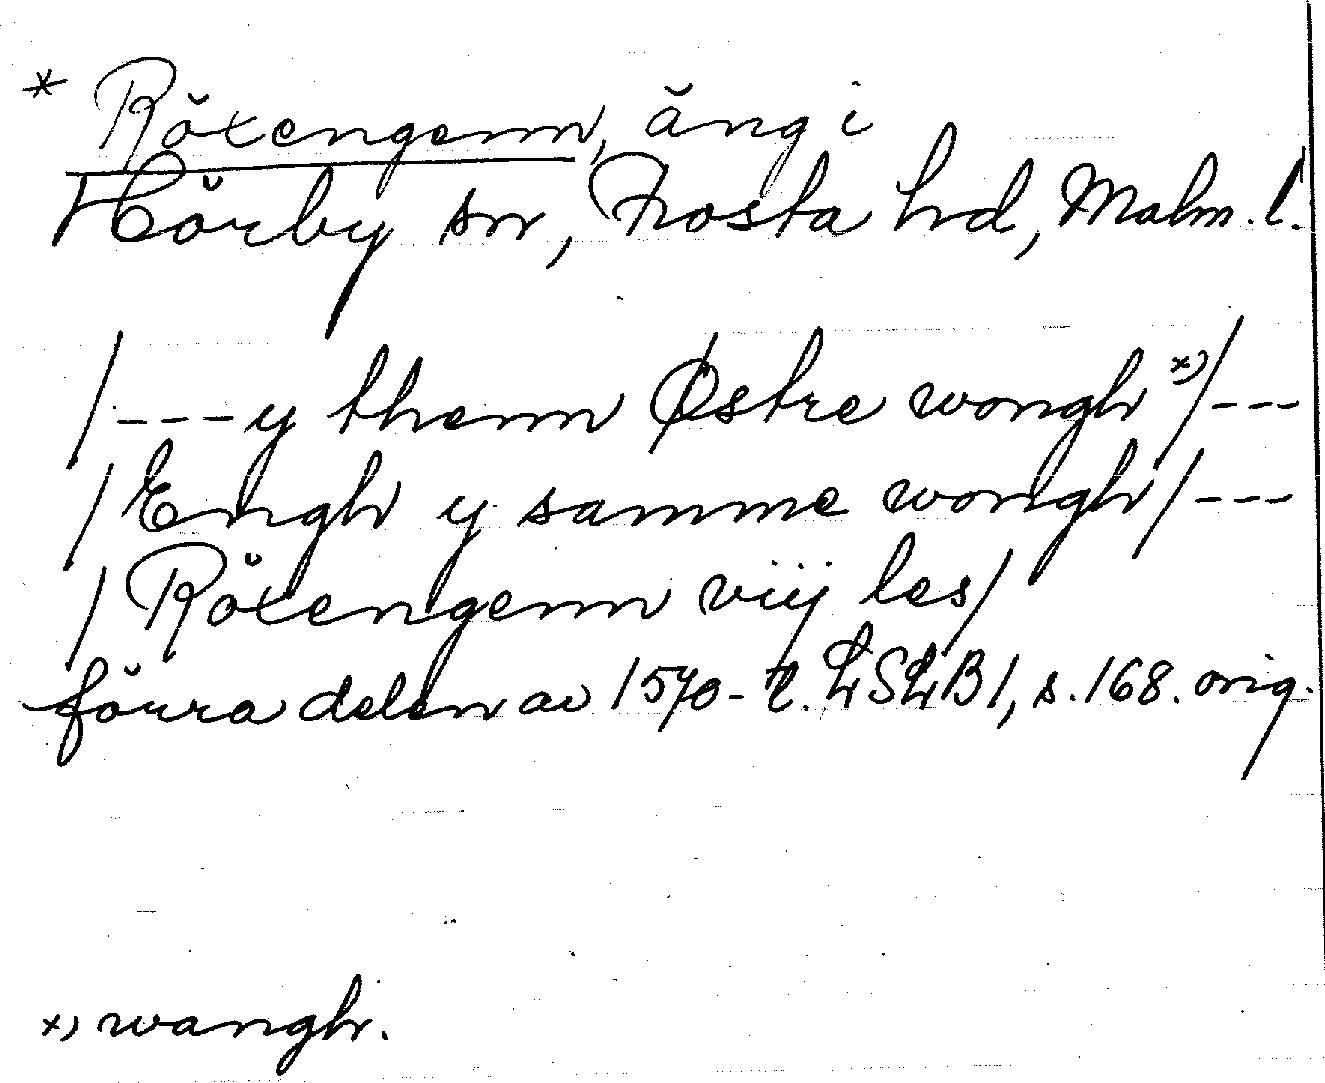 * Röxengenn, äng i
Hörby sn, Frosta hd, Malm. l.
/---y thenn Østre wongh x)/---
/Engh y samme wongh/---
/Röxengenn viij les/
förra delen av 1570-t. LSLB1, s. 168. orig.
x) wangh.